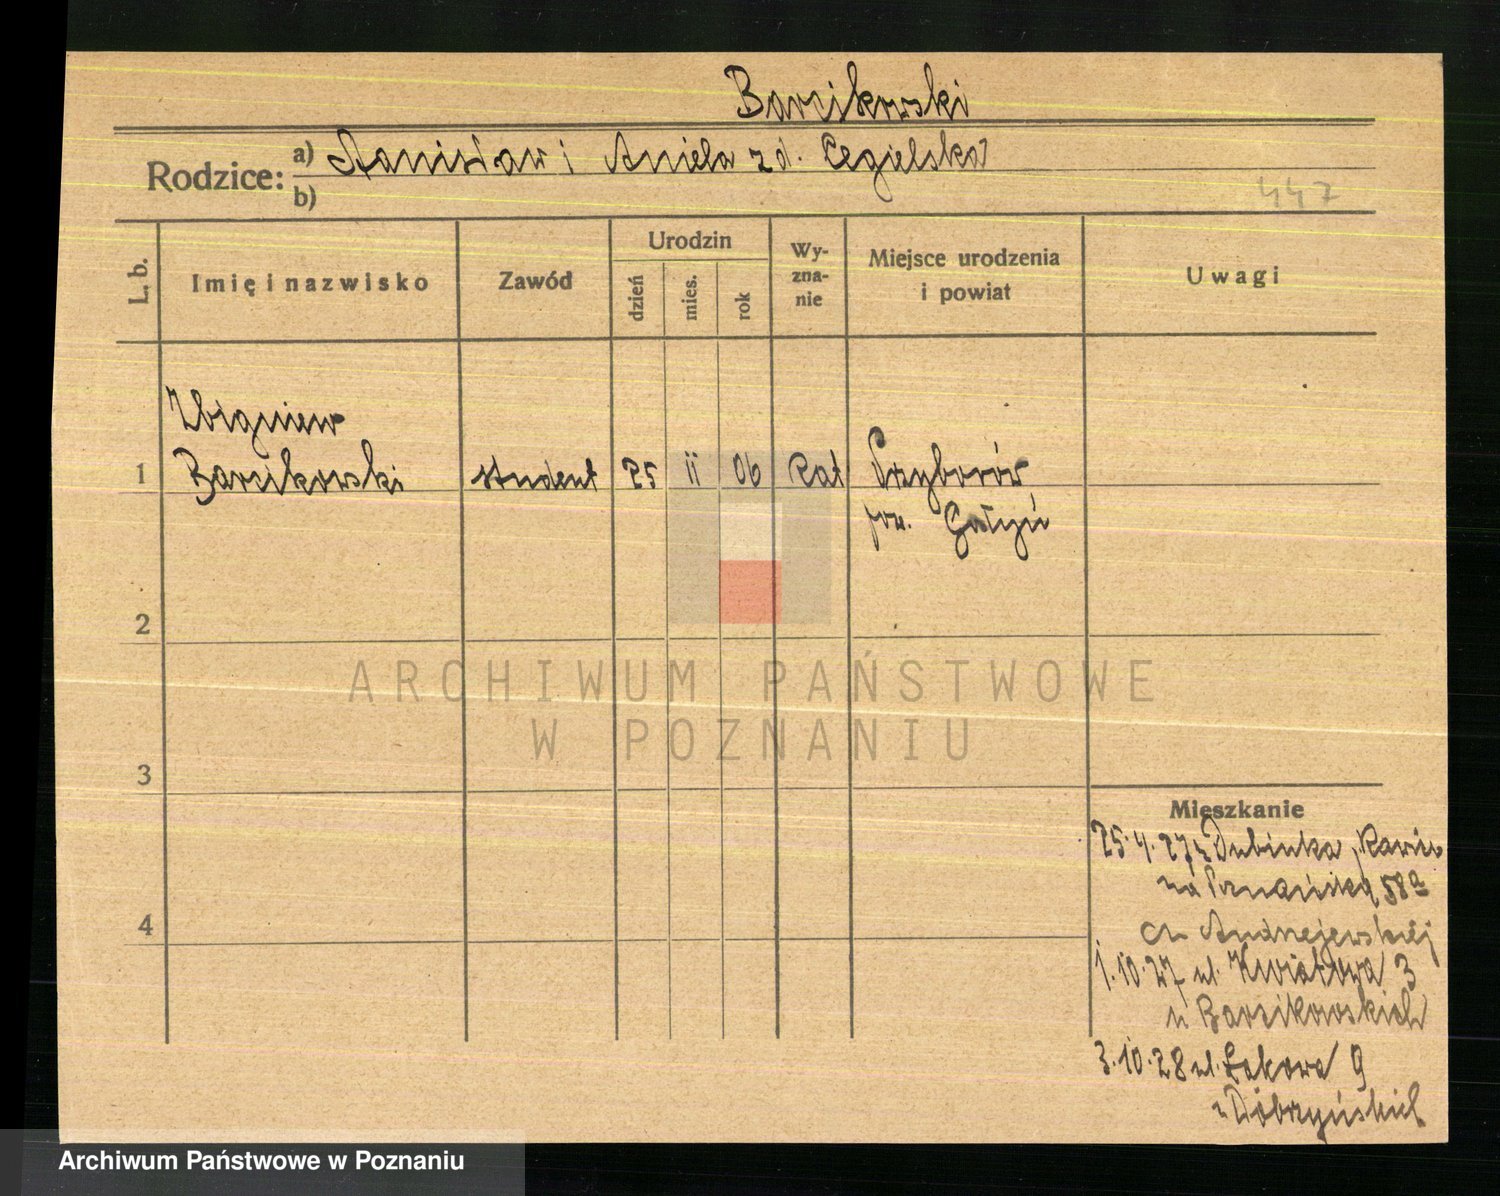 Barcikowski
Rodzice: a) Stanisław i Aniela zd. Cegielska
b)
447
L. b.
Imię i nazwisko
Zawód
Urodzin
dzień
mies.
rok
Wy-
zna-
nie
Miejsce urodzenia
i powiat
Uwagi
Zbigniew
1 Barcikowski student 25 II 06 Kat Przyborów
pow.
2
3
4
Mieszkanie
25.4.27 z Dubinka,
na Poznańska 58a
Andrzejewskiej
1.10.27 ul. Kwiatowa 3
u Barcikowskich
3.10.28 ul. Łąkowa 9
u Dobrzyńskich
ARCHIWUM PAŃSTWOWE
W POZNANIU
Archiwum Państwowe w Poznaniu